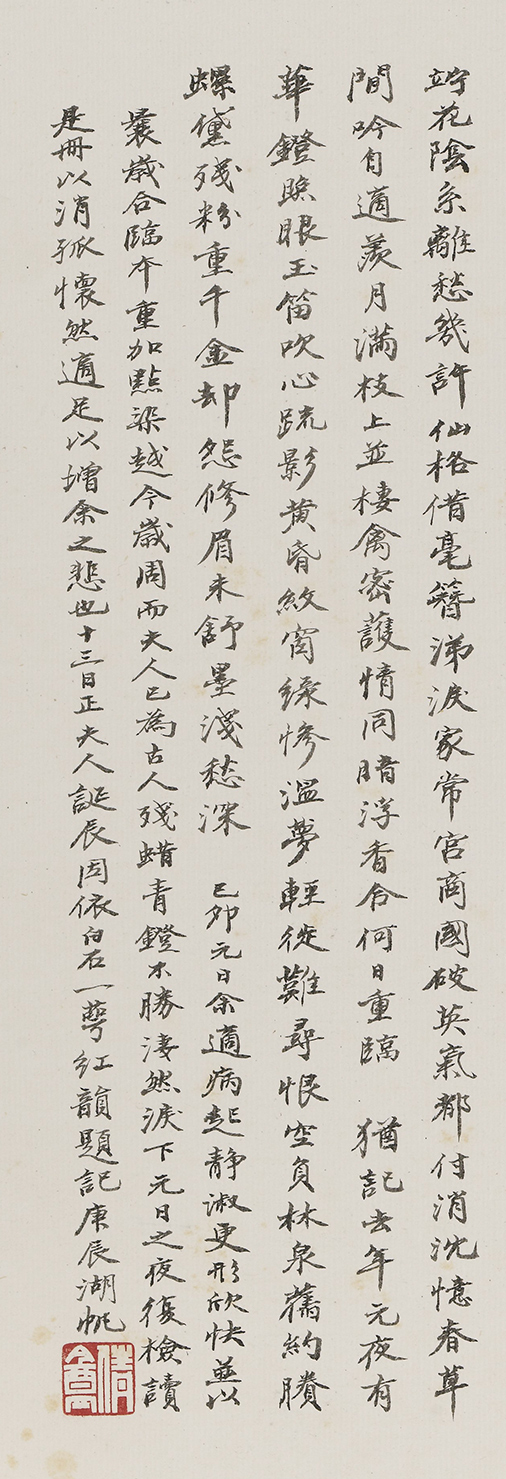 竚花陰系離愁幾許仙格借毫簪涕淚家常宮商國破英氣都付消沈憶春草
間吟自適羨月滿枝上並棲禽密護情同暗浮香合何日重臨　猶記去年元夜有
華鐙照眼玉笛吹心疏影黃昏紋窗綠慘溫夢輕從難尋恨空負林泉舊約賸
螺黛殘粉重千金却怨修眉未舒墨淺愁深　己卯元日余適病起靜淑更形欣快並以
曩歲合臨本重加點染越今歲周而夫人已為古人殘蜡青鐙不勝淒然淚下元日之夜復檢讀
是冊以消孤懷然適足以增余之悲也十三日正夫人誕辰因依白石一萼紅韻題記庚辰湖帆
倩盦